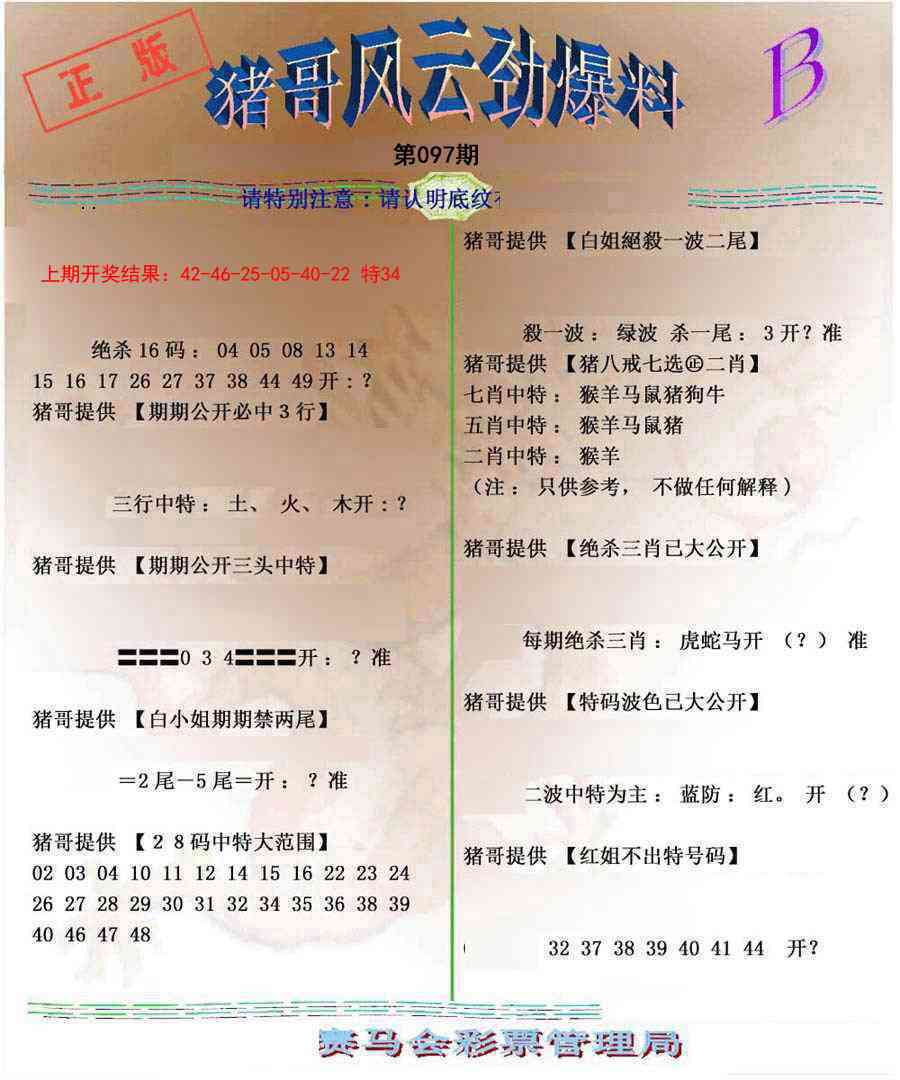 正版
猪哥风云劲爆料
B
第097期
请特别注意：请认明底纹
上期开奖结果：42-46-25-05-40-22 特34
绝杀16码： 04 05 08 13 14
15 16 17 26 27 37 38 44 49开：？
猪哥提供 【期期公开必中３行】
三行中特： 土、 火、 木开：？
猪哥提供 【期期公开三头中特】
〓〓〓0 3 4〓〓〓开： ？准
猪哥提供 【白小姐期期禁两尾】
＝2尾－5尾＝开： ？准
猪哥提供 【２８码中特大范围】
02 03 04 10 11 12 14 15 16 22 23 24
26 27 28 29 30 31 32 34 35 36 38 39
40 46 47 48
猪哥提供 【白姐絕殺一波二尾】
殺一波： 绿波 杀一尾： 3开？准
猪哥提供 【猪八戒七选㊣二肖】
七肖中特： 猴羊马鼠猪狗牛
五肖中特： 猴羊马鼠猪
二肖中特： 猴羊
（注： 只供参考， 不做任何解释）
猪哥提供 【绝杀三肖已大公开】
每期绝杀三肖： 虎蛇马开 （？） 准
猪哥提供 【特码波色已大公开】
二波中特为主： 蓝防： 红。 开 （？）
猪哥提供 【红姐不出特号码】
32 37 38 39 40 41 44 开？
赛马会彩票管理局